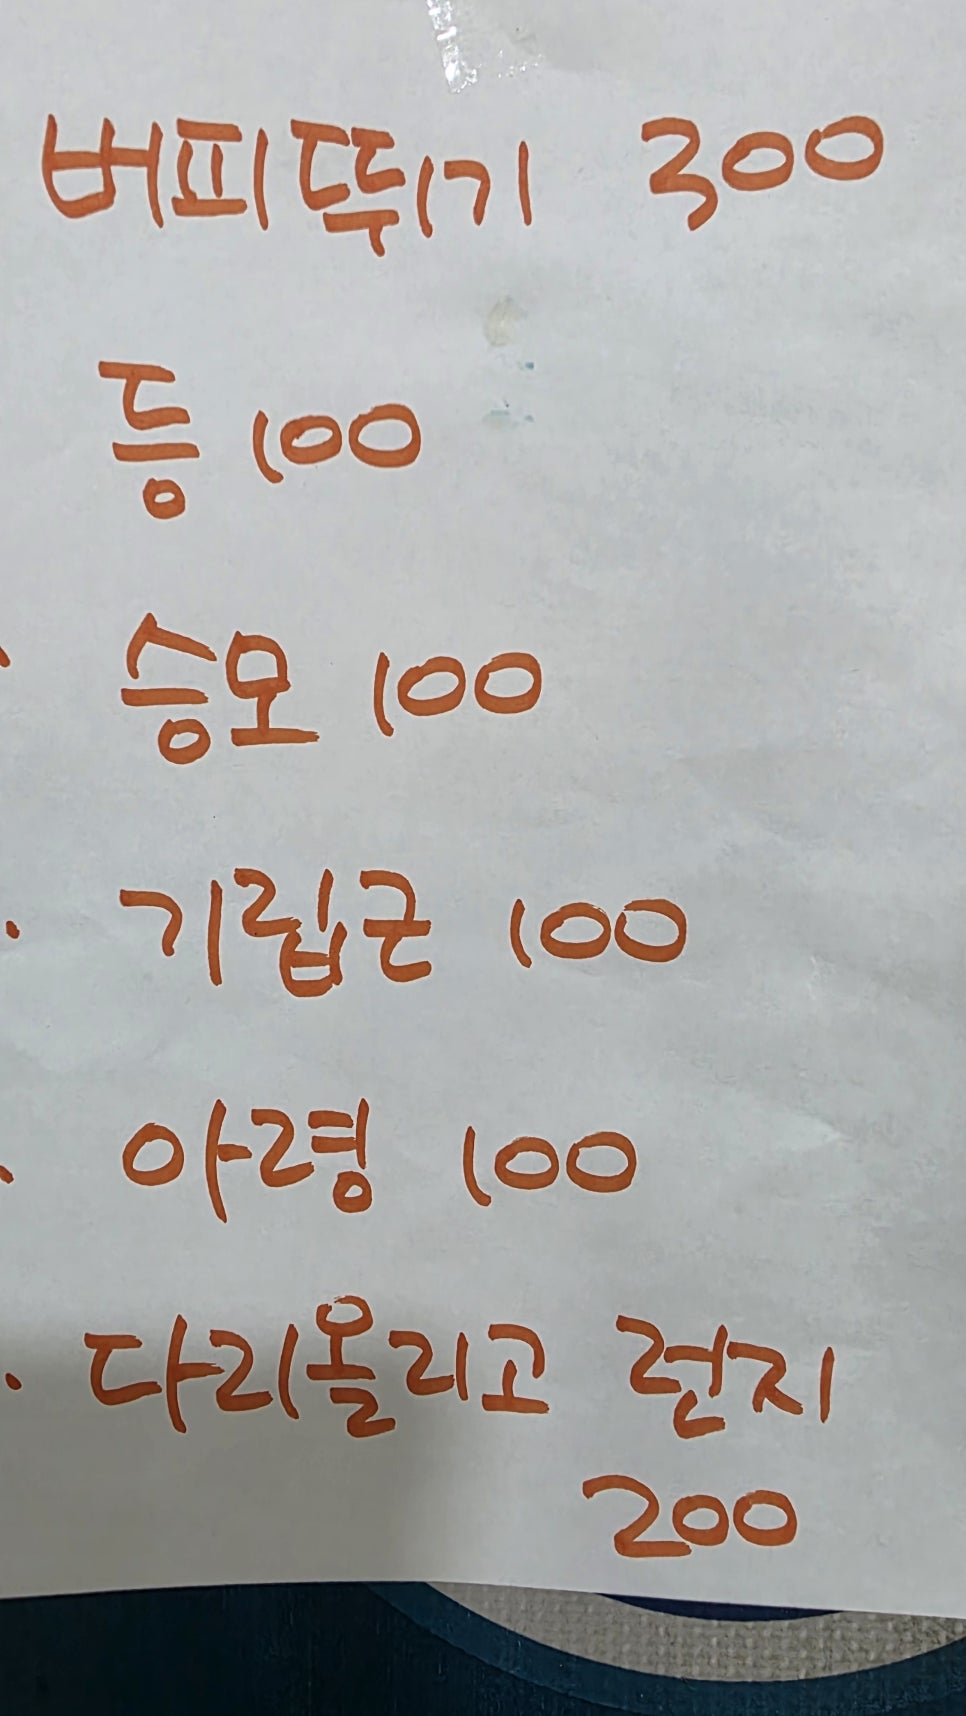 버피뛰기 300
등 100
승모 100
· 기립근 100
아령 100
· 다리올리고 런지
200